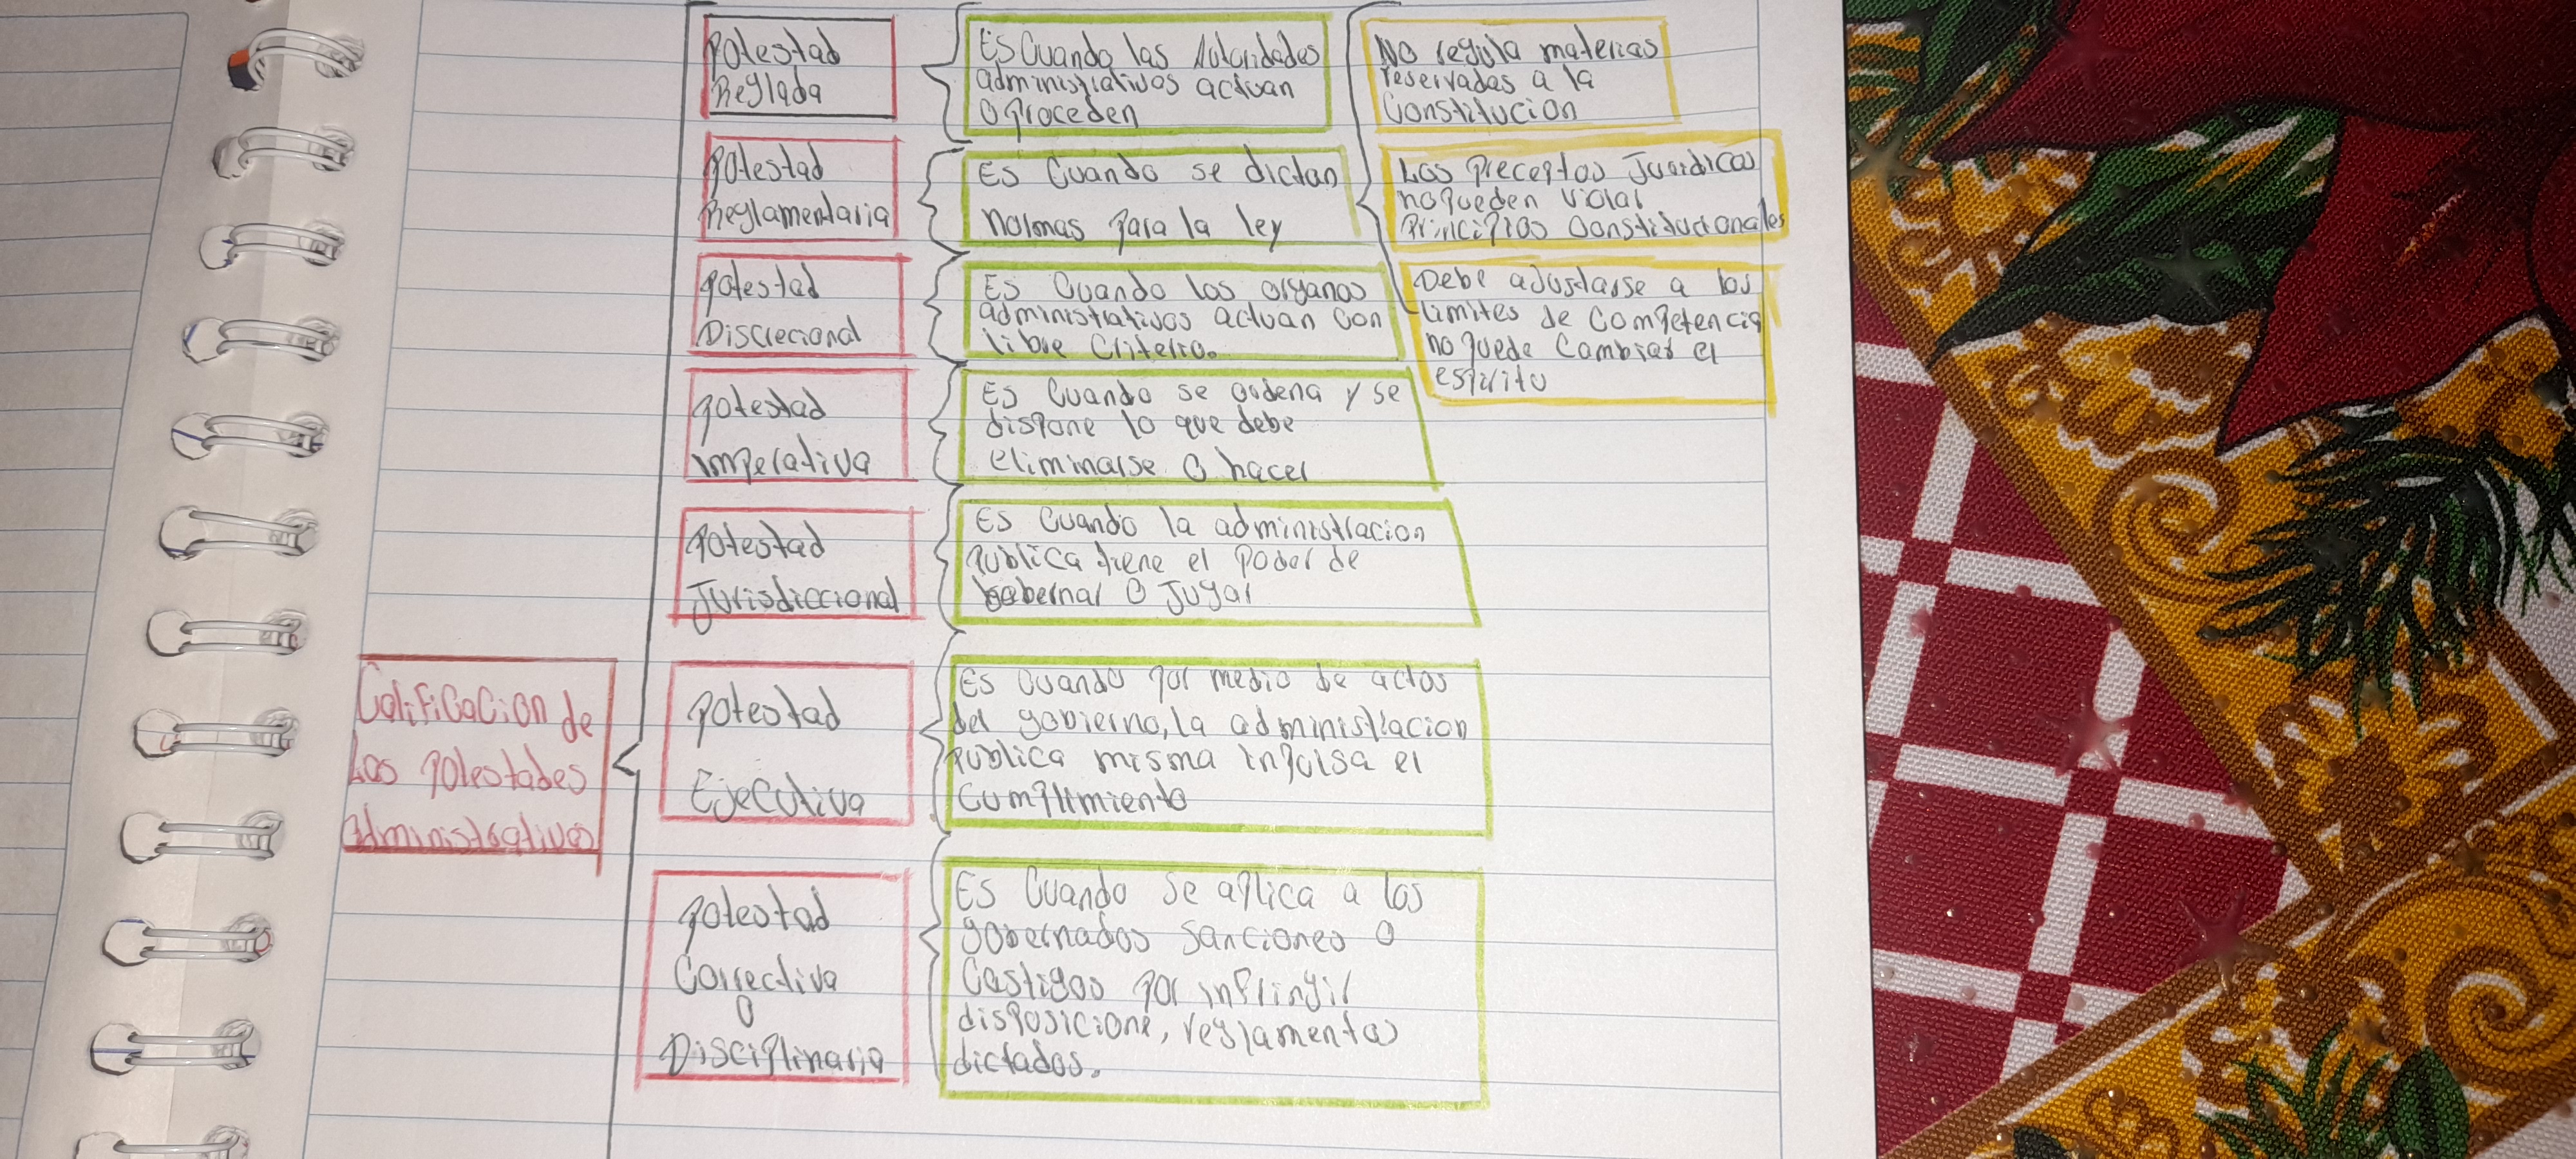 Calificacion de
Las potestades
administrativas
Potestad
Reglada
Es Cuando las Autoridades
administrativas actuan
o proceden
Potestad
Reglamentaria
Es Cuando se dictan
normas para la ley
No regula materias
reservadas a la
Constitucion
Los preceptos Juridicos
no pueden violar
Principios Constitucionales
Debe ajustarse a los
limites de Competencia
no puede Cambiar el
espiritu
potestad
Discrecional
Es Cuando los organos
administrativos actuan con
libre Criterio.
potestad
imperativa
Es Cuando se ordena y se
dispone lo que debe
eliminarse o hacer
potestad
Jurisdiccional
Es Cuando la administracion
publica tiene el poder de
gobernar o Jugar
potestad
Ejecutiva
Es Cuando por medio de actos
del gobierno, la administracion
publica misma inpulsa el
cumplimiento
potestad
Correctiva
o
Disciplinaria
Es Cuando se aplica a los
gobernados sanciones o
Castigos por infringir
disposicione, reglamentos
dictados.